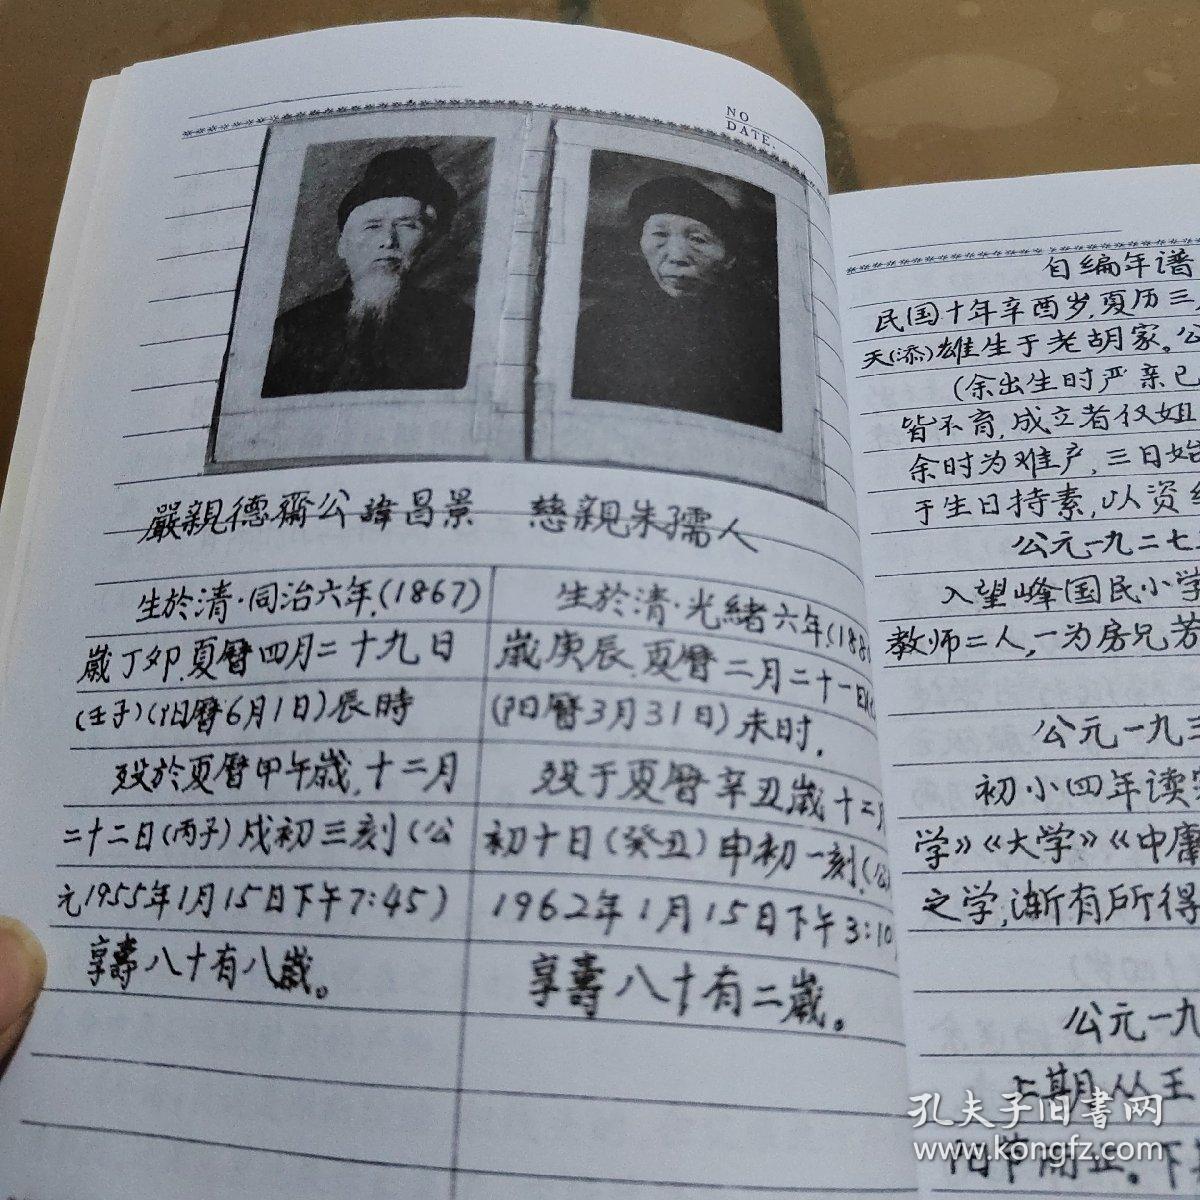 NO
DATE.
嚴親德齋公諱昌景
慈親朱孺人
生於清·同治六年,(1867)
歲丁卯,夏曆四月二十九日
(壬子)(阳曆6月1日)辰時
歿於夏曆甲午歲,十二月
二十二日(丙子)戌初三刻(公
元1955年1月15日下午7:45)
享壽八十有八歲。
生於清·光緒六年,(188
歲庚辰,夏曆二月二十一日
(阳曆3月31日)未时,
歿于夏曆辛丑歲十二月
初十日(癸丑)申初一刻,(公
1962年1月15日下午3:10
享壽八十有二歲。
自编年谱
民国十年辛酉岁,夏历三
天(添)雄生于老胡家。公
(余出生时严亲已
皆不育,成立者仅姐
余时为难产,三日始
于生日持素,以资纪
公元一九二七
入望峰国民小学
教师二人,一为房兄芳
公元一九三
初小四年读完
学》《大学》《中庸
之学,渐有所得
公元一九
上期从王
阳节
下
孔夫子旧书网
www.kongfz.com